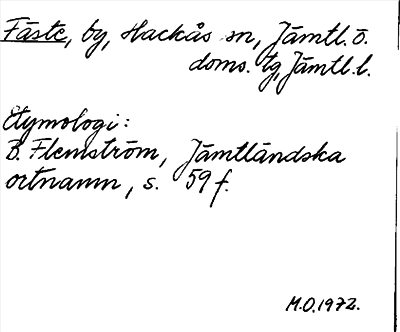 Fäste, by, Hackås sn, Jämtl. ö.
doms. tg, Jämtl. l.
Etymologi:
B. Flemström, Jämtländska
ortnamn, s. 59 f.
M.O. 1972.